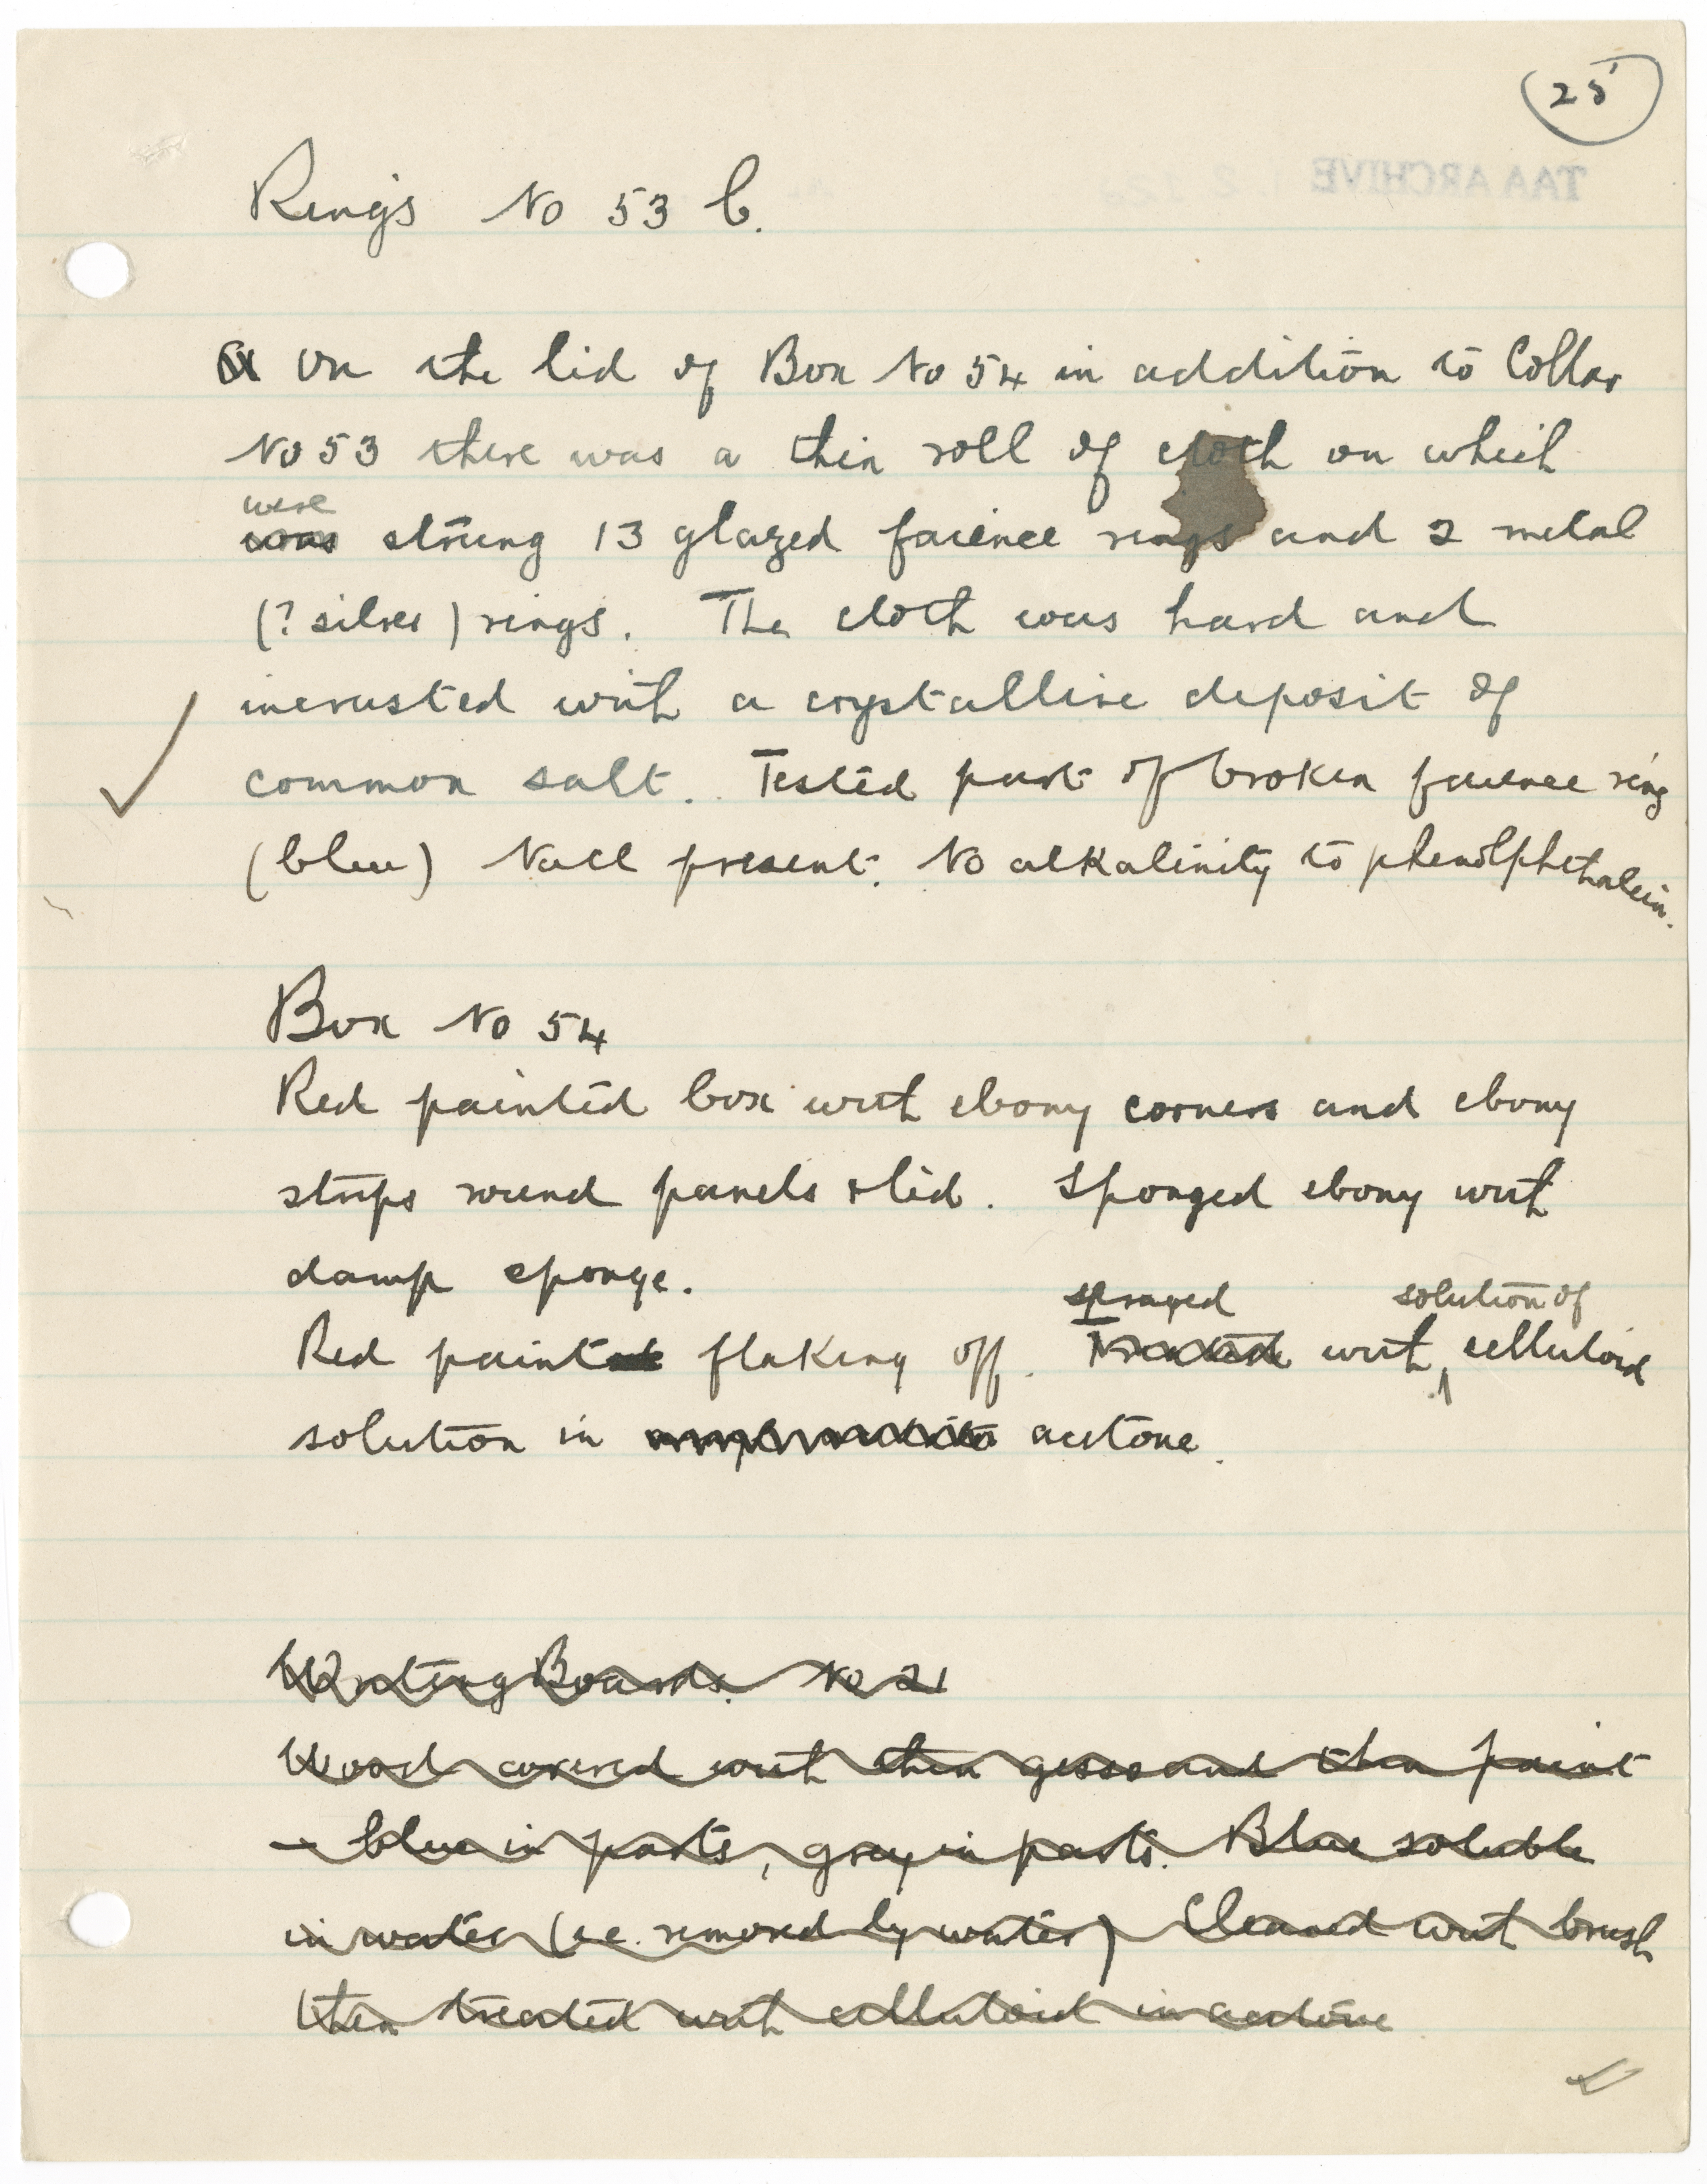 25
TAA ARCHIVE
Rings No 53 b.
On the lid of Box No 54 in addition to Collar
No 53 there was a thin roll of cloth on which
were
was strung 13 glazed faience rings and 2 metal
(? silver) rings. The cloth was hard and
incrusted with a crystalline deposit of
common salt. Tested part of broken faience ring
(blue) NaCl present. No alkalinity to phenolphthalein.
Box No 54
Red painted box with ebony corners and ebony
strips round panels & lid. Sponged ebony with
damp sponge.
sprayed solution of
Red paint flaking off. Treated with celluloid
solution in acetone.
Writing Boards. No 21
Wood covered with thin gesso and then paint
- blue in parts, grey in parts. Blue soluble
in water (i.e. removed by water) Cleaned with brush
then treated with celluloid in acetone